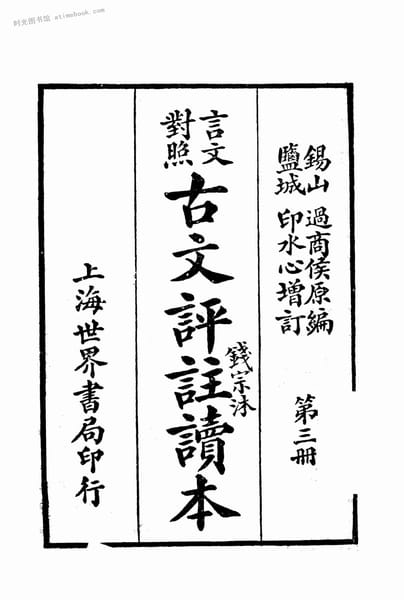 时光图书馆 - atimebook.com
錫山 過商侯原編
鹽城 印水心增訂
第三冊
言文
對照
古文評註讀本
錢宗沐
上海世界書局印行